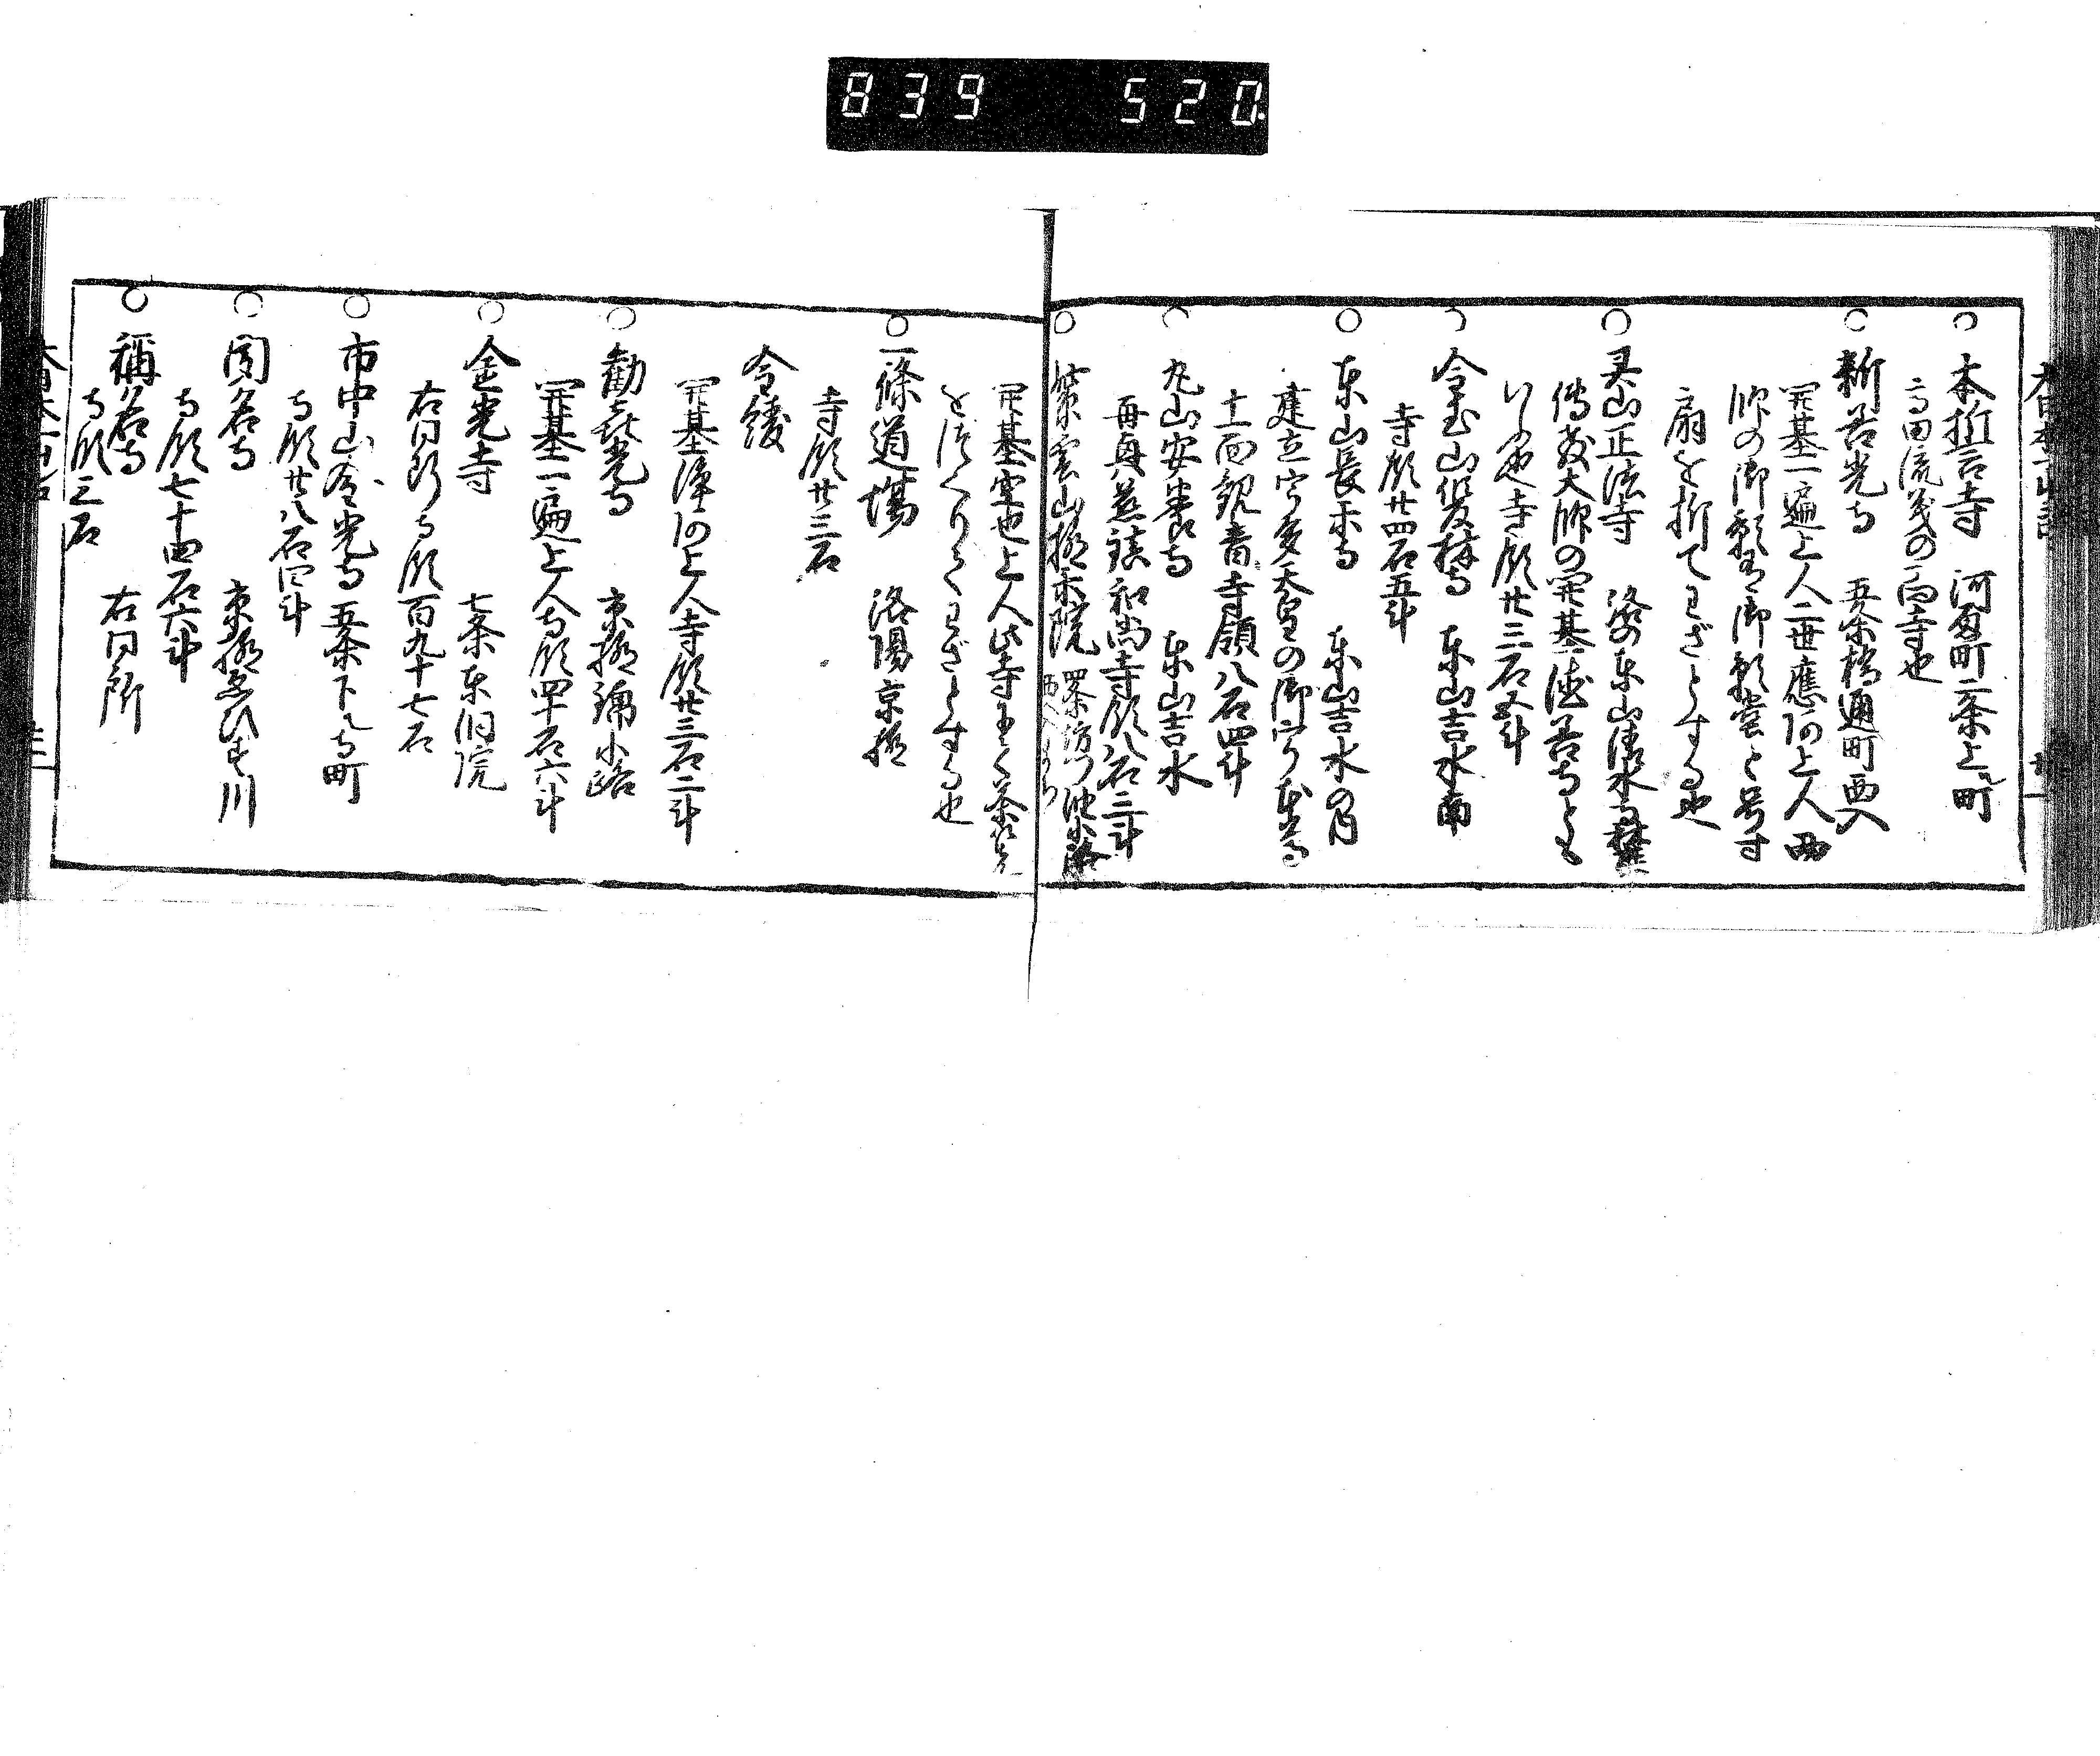 839 520
○本誓寺 河原町二条上ル町
高田流義の一寺也
○新善光寺 五条橋通町西へ入
開基一遍上人二世應阿上人
御の御影有御影堂と号す
扇を折てわざとする也
○灵山正法寺 洛の東山清水
傳教大師の開基徳善寺とも
いふ也寺領廿三石五斗
○金玉山双林寺 東山吉水南
寺領廿四石五斗
○東山長樂寺 東山吉水の
建立宇多天皇の御宇本尊
十一面観音寺領八石四斗
○丸山安養寺 東山吉水
再興慈鎮和尚寺領八石三斗
○紫雲山極樂院 四条坊門油小路
開基空也上人此寺にて茶筅
を作りてわざとする也
○一條道場 洛陽京極
寺領廿三石
令綾
開基浄阿上人寺領廿三石二斗
○勸喜光寺 京極錦小路
開基一遍上人寺領四十石六斗
○金光寺 七条東洞院
右同所寺領百九十七石
○市中山金光寺 五条下ル寺町
寺領廿八石四斗
○聞名寺 京極ゑびす川
寺領七十四石六斗
○稱名寺 右同所
寺領三石